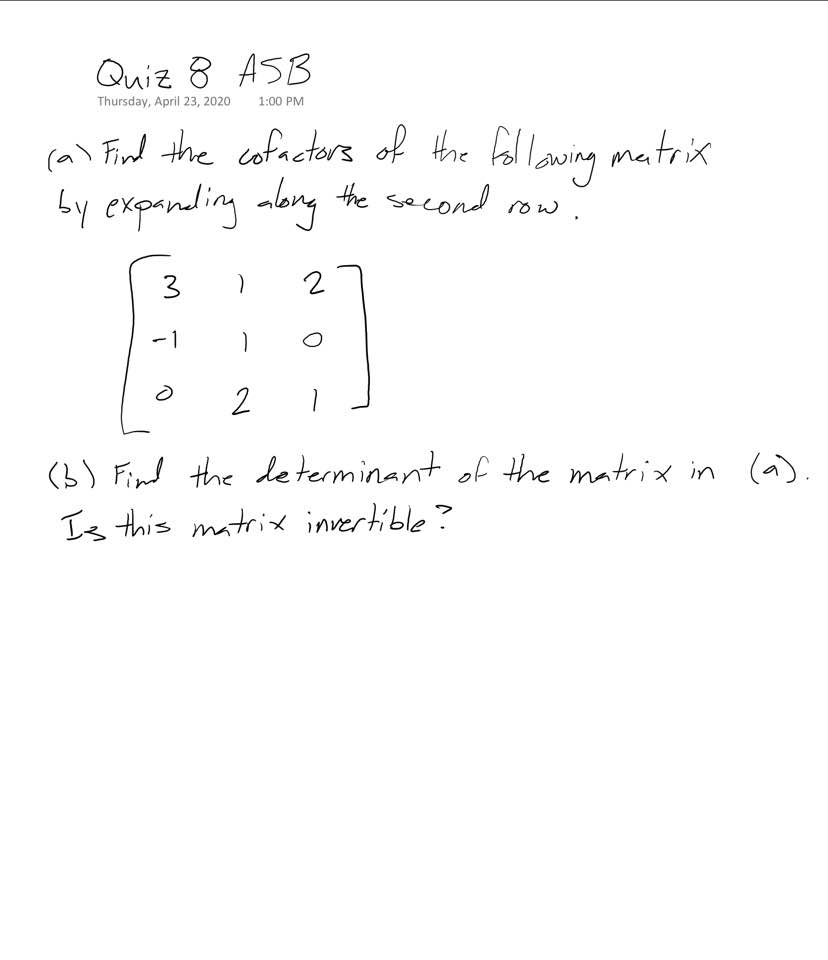 Quiz 8 ASB
Thursday, April 23, 2020 1:00 PM
(a) Find the cofactors of the following matrix
by expanding along the second row.
3 1 2
-1 1 0
0 2 1
(b) Find the determinant of the matrix in (a).
Is this matrix invertible?